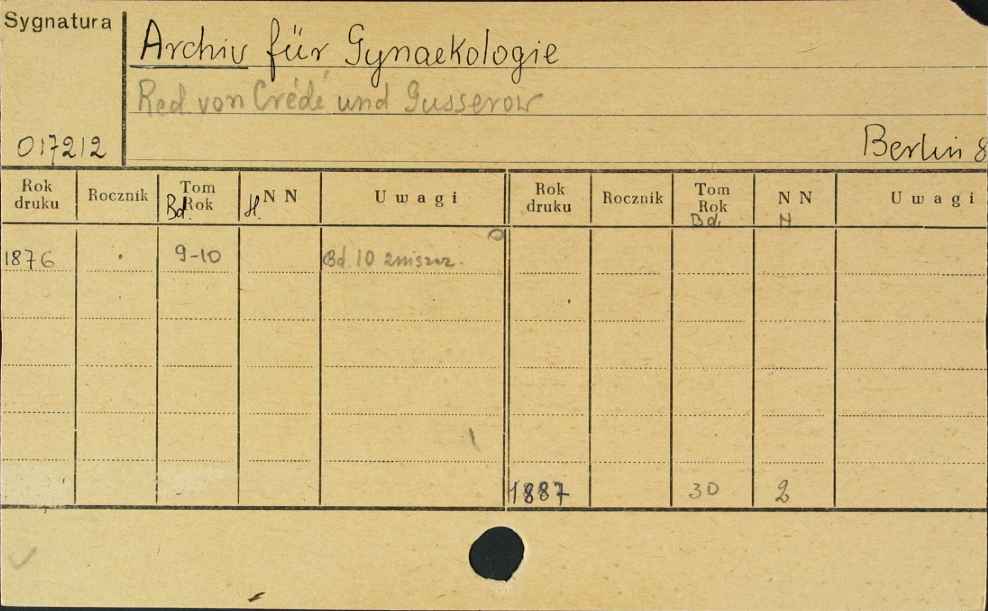 Sygnatura
Archiv für Gynaekologie
Red von Crédé und Gusserow
017212
Berlin 8
Rok druku Rocznik Tom Rok Bd. NN H. Uwagi Rok druku Rocznik Tom Rok Bd. NN N Uwagi
1876 9-10 Bd. 10 zniszcz.
1887 30 2